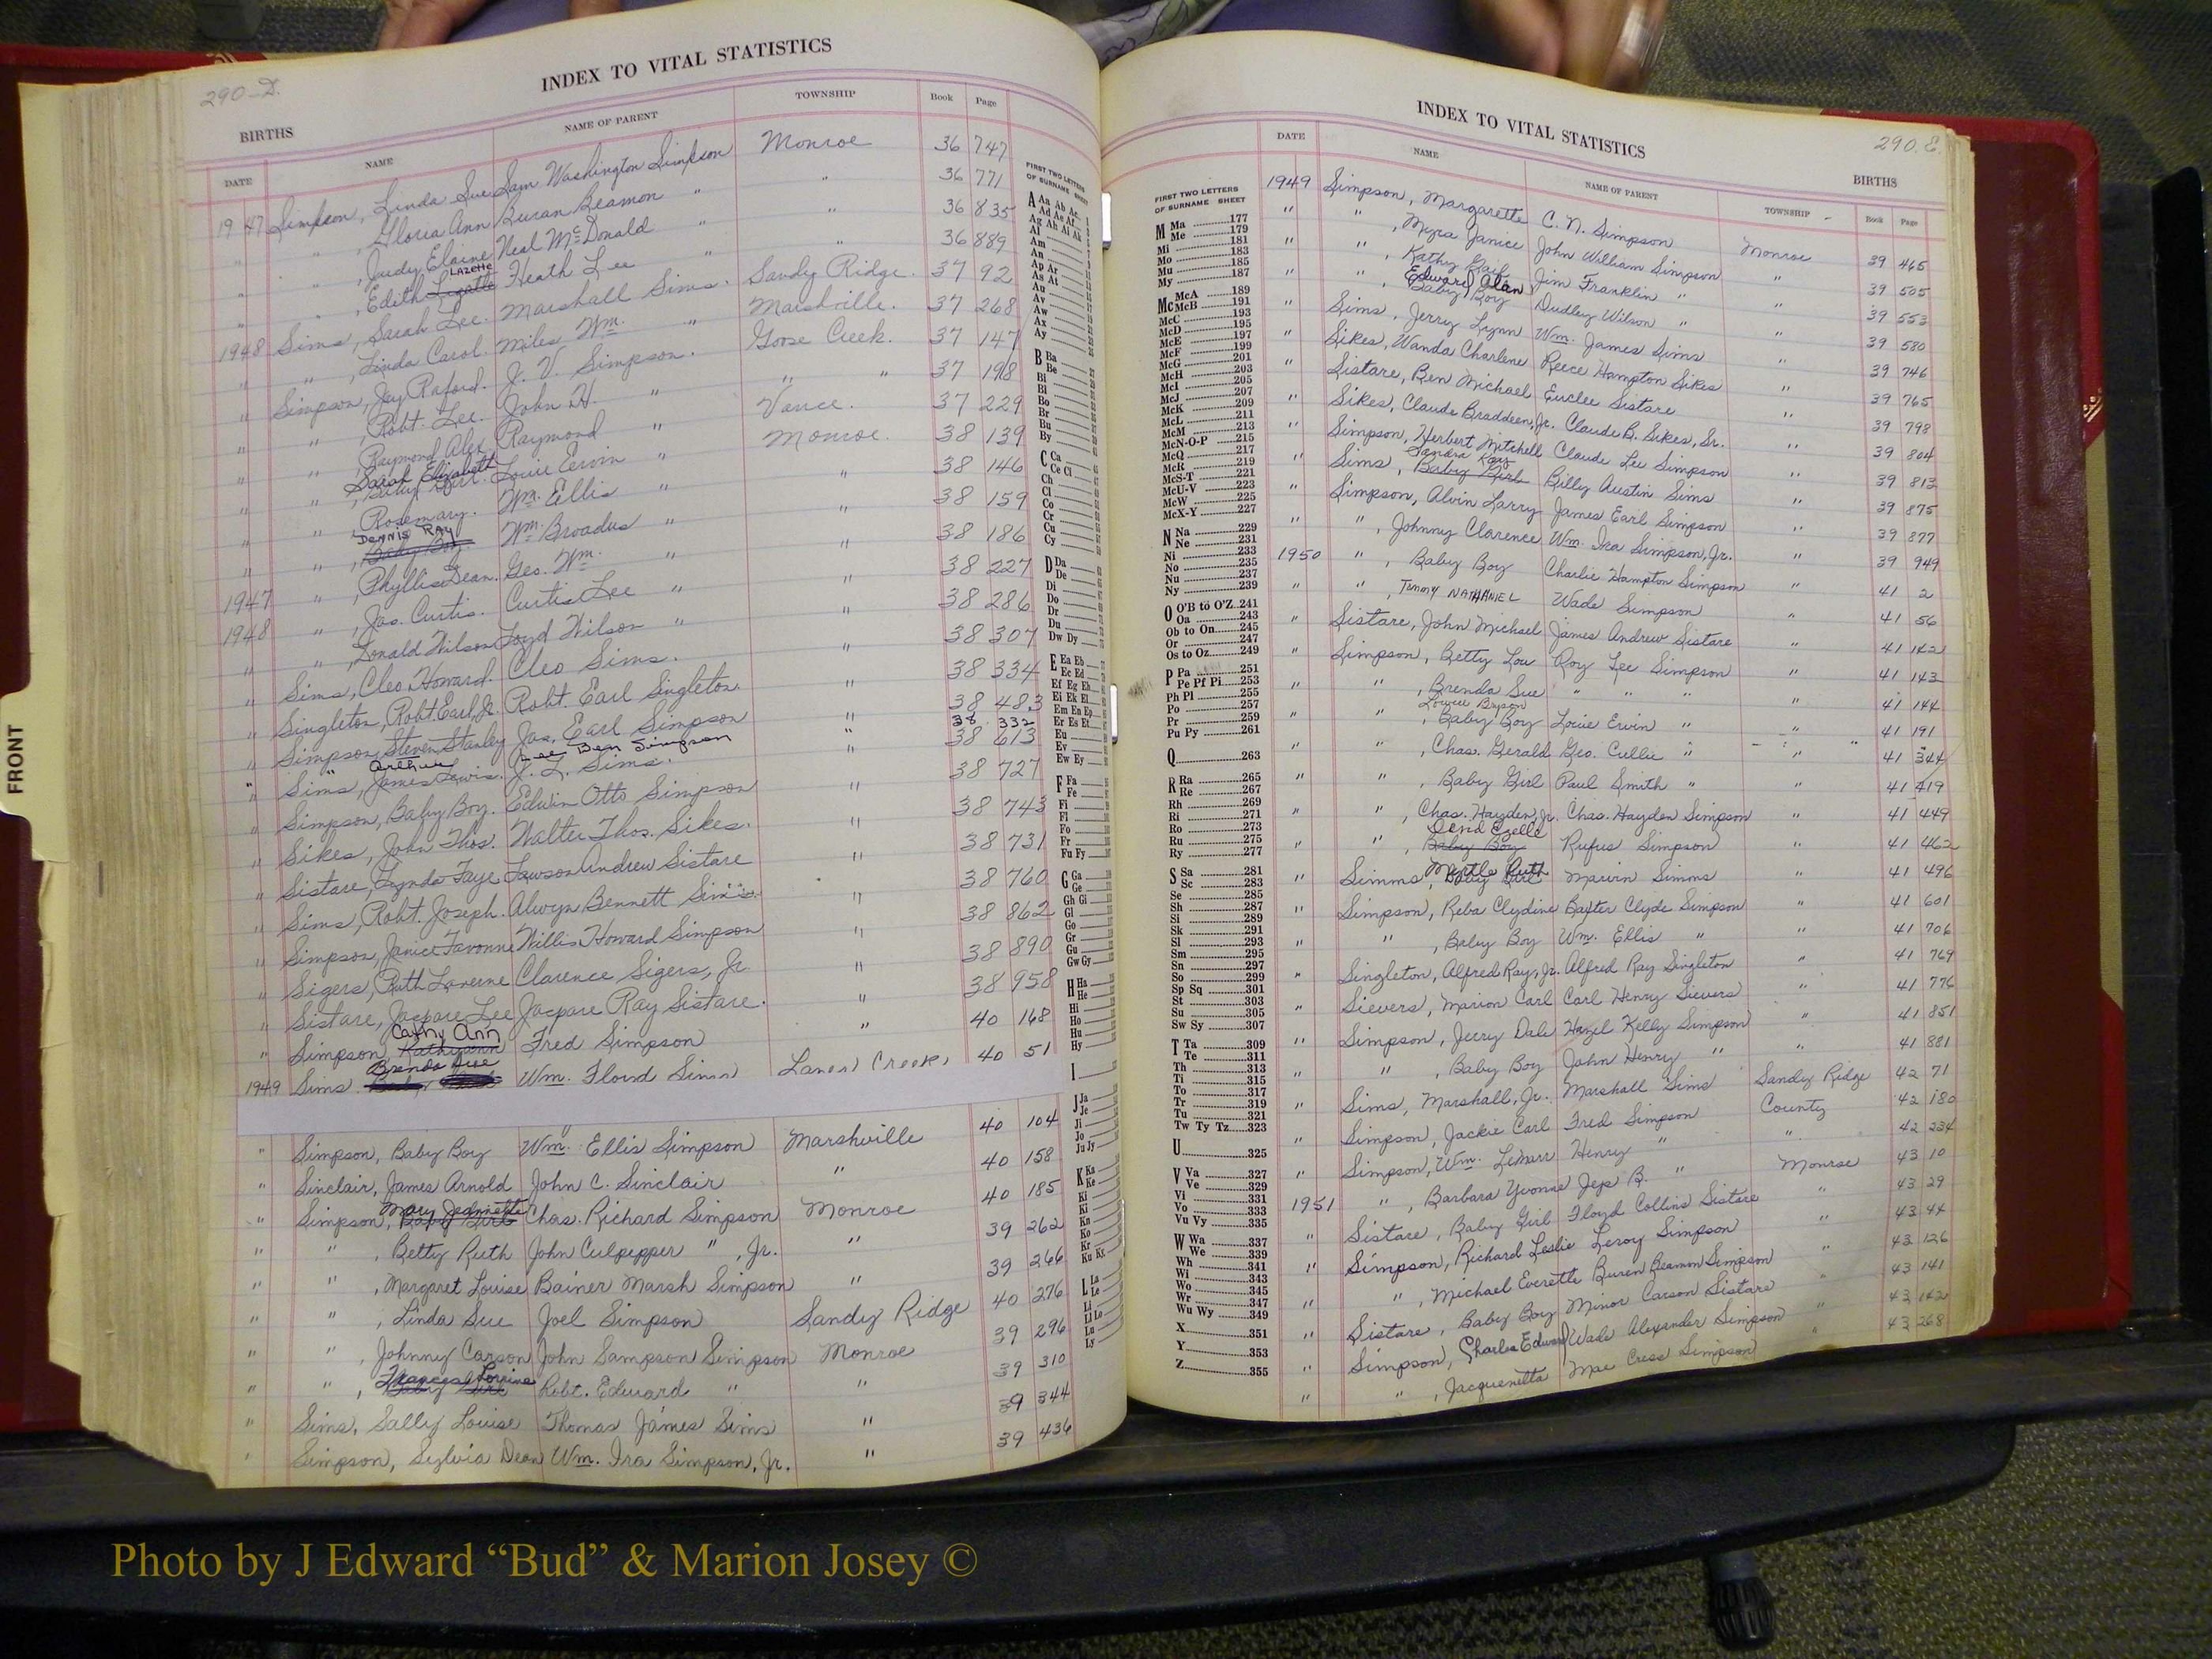 290-D.
INDEX TO VITAL STATISTICS
BIRTHS
DATE NAME NAME OF PARENT TOWNSHIP Book Page
1947 Simpson, Linda Sue Sam Washington Simpson Monroe 36 747
" " , Gloria Ann Buran Beamon " " 36 771
" " , Judy Elaine Neal McDonald " " 36 835
" " , Edith Lizette LAZETTE Heath Lee " " 36 889
1948 Sims, Sarah Lee. Marshall Sims. Sandy Ridge. 37 92
" " , Linda Carol. Miles Wm. " Marshville. 37 268
" Simpson, Jay Raford. J. V. Simpson. Goose Creek. 37 147
" " , Robt. Lee. John H. " " " 37 198
" " , Raymond Alex Raymond " Vance. 37 229
" " , Sarah Elizabeth Baby Girl. Louie Ervin " Monroe. 38 139
" " , Rosemary. Wm. Ellis " " 38 146
" " , DENNIS RAY Baby Boy. Wm. Broadus " " 38 159
" " , Phyllis Dean. Geo. Wm. " " 38 186
1947 " , Jas. Curtis. Curtis Lee " " 38 227
1948 " , Donald Wilson Loyd Wilson " " 38 286
" Sims, Cleo Howard. Cleo Sims. " 38 307
" Singleton, Robt. Earl, Jr. Robt. Earl Singleton. " 38 334
" Simpson, Steven Stanley Jas. Earl Simpson " 38 483
" " Arthur Lee Ben Simpson " 38 332
" Sims, James Lewis. J. L. Sims. " 38 613
" Simpson, Baby Boy. Edwin Otto Simpson " 38 727
" Sikes, John Thos. Walter Thos. Sikes. " 38 743
" Sistare, Lynda Faye Lawson Andrew Sistare " 38 731
" Sims, Robt. Joseph. Alwyn Bennett Sims. " 38 760
" Simpson, Janice Favonne Willis Howard Simpson " 38 862
" Sigers, Ruth Laverne Clarence Sigers, Jr. " 38 890
" Sistare, Jacpare Lee Jacpare Ray Sistare. " 38 958
" Simpson, Cathy Ann Kathyann Fred Simpson " 40 168
1949 Sims Brenda Wm. Floyd Sims Lanes Creek, 40 51
" Simpson, Baby Boy Wm. Ellis Simpson Marshville 40 104
" Sinclair, James Arnold John C. Sinclair " 40 158
" Simpson, Mary Jeanette Baby Girl Chas. Richard Simpson Monroe 40 185
" " , Betty Ruth John Culpepper " , Jr. " 39 262
" " , Margaret Louise Bainer Marsh Simpson " 39 266
" " , Linda Sue Joel Simpson Sandy Ridge 40 276
" " , Johnny Carson John Sampson Simpson Monroe 39 296
" " , Frances Lorine Baby Girl Robt. Edward " " 39 310
" Sims, Sally Louise Thomas James Sims " 39 344
" Simpson, Sylvia Dean Wm. Ira Simpson, Jr. " 39 436
FIRST TWO LETTERS
OF SURNAME SHEET
A Aa Ab Ac
Ad Ae Af
Ag Ah Ai Ak
Al
Am
An
Ap Ar
As At
Au
Av
Aw
Ax
Ay
B Ba
Be
Bi
Bl
Bo
Br
Bu
By
C Ca
Ce Ci
Ch
Cl
Co
Cr
Cu
Cy
D Da
De
Di
Do
Dr
Du
Dw Dy
E Ea Eb
Ec Ed
Ef Eg Eh
Ei Ek El
Em En Eo
Er Es Et
Eu
Ev
Ew Ey
F Fa
Fe
Fi
Fl
Fo
Fr
Fu Fy
G Ga
Ge
Gh Gi
Gl
Go
Gr
Gu
Gw Gy
H Ha
He
Hi
Ho
Hu
Hy
I
J Ja
Je
Ji
Jo
Ju Jy
K Ka
Ke
Ki
Kl
Kn
Ko
Kr
Ku Ky
L La
Le
Li
Ll Lo
Lu
Ly
INDEX TO VITAL STATISTICS
290. E.
BIRTHS
DATE NAME NAME OF PARENT TOWNSHIP Book Page
FIRST TWO LETTERS
OF SURNAME SHEET
M Ma 177
Me 179
Mi 181
Mo 183
Mu 185
My 187
Mc McA 189
McB 191
McC 193
McD 195
McE 197
McF 199
McG 201
McH 203
McI 205
McJ 207
McK 209
McL 211
McM 213
McN-O-P 215
McQ 217
McR 219
McS-T 221
McU-V 223
McW 225
McX-Y 227
N Na 229
Ne 231
Ni 233
No 235
Nu 237
Ny 239
O O'B to O'Z 241
Oa 243
Ob to On 245
Or 247
Os to Oz 249
P Pa 251
Pe Pf Pi 253
Ph Pl 255
Po 257
Pr 259
Pu Py 261
Q 263
R Ra 265
Re 267
Rh 269
Ri 271
Ro 273
Ru 275
Ry 277
S Sa 281
Sc 283
Se 285
Sh 287
Si 289
Sk 291
Sl 293
Sm 295
Sn 297
So 299
Sp Sq 301
St 303
Su 305
Sw Sy 307
T Ta 309
Te 311
Th 313
Ti 315
To 317
Tr 319
Tu 321
Tw Ty Tz 323
U 325
V Va 327
Ve 329
Vi 331
Vo 333
Vu Vy 335
W Wa 337
We 339
Wh 341
Wi 343
Wo 345
Wr 347
Wu Wy 349
X 351
Y 353
Z 355
1949 Simpson, Margarette C. N. Simpson Monroe 39 465
" " , Myra Janice John William Simpson " 39 505
" " , Kathy Gail Jim Franklin " " 39 553
" " , Edward Alan Baby Boy Dudley Wilson " " 39 580
" Sims, Jerry Lynn Wm. James Sims " 39 746
" Sikes, Wanda Charlene Reece Hampton Sikes " 39 765
" Sistare, Ben Michael Euclee Sistare " 39 798
" Sikes, Claude Braddeen, Jr. Claude B. Sikes, Sr. " 39 804
" Simpson, Herbert Mitchell Claude Lee Simpson " 39 813
" Sims, Sandra Kay Baby Girl Billy Austin Sims " 39 875
" Simpson, Alvin Larry James Earl Simpson " 39 877
" " , Johnny Clarence Wm. Ira Simpson, Jr. " 39 949
1950 " , Baby Boy Charlie Hampton Simpson " 41 2
" " , Timmy NATHANIEL Wade Simpson " 41 56
" Sistare, John Michael James Andrew Sistare " 41 142
" Simpson, Betty Lou Roy Lee Simpson " 41 143
" " , Brenda Sue " " " " 41 144
" " , Lowell Bryson Baby Boy Louie Ervin " " 41 191
" " , Chas. Gerald Geo. Cullie " " 41 344
" " , Baby Girl Paul Smith " " 41 419
" " , Chas. Hayden, Jr. Chas. Hayden Simpson " 41 449
" " , Dend Ezelle Baby Boy Rufus Simpson " 41 462
" Simms, Myrtle Ruth Baby Girl Marvin Simms " 41 496
" Simpson, Reba Clydine Baxter Clyde Simpson " 41 601
" " , Baby Boy Wm. Ellis " " 41 706
" Singleton, Alfred Ray, Jr. Alfred Ray Singleton " 41 769
" Sievers, Marion Carl Carl Henry Sievers " 41 776
" Simpson, Jerry Dale Hazel Kelly Simpson " 41 851
" " , Baby Boy John Henry " " 41 881
" Sims, Marshall, Jr. Marshall Sims Sandy Ridge 42 71
" Simpson, Jackie Carl Fred Simpson County 42 180
" Simpson, Wm. Lemarr Henry " " 42 234
1951 " , Barbara Yvonne Jeps B. " Monroe 43 10
" Sistare, Baby Girl Floyd Collins Sistare " 43 29
" Simpson, Richard Leslie Leroy Simpson " 43 44
" " , Michael Everette Buren Beamon Simpson " 43 126
" Sistare, Baby Boy Minor Carson Sistare " 43 141
" Simpson, Charles Edward Wade Alexander Simpson " 43 142
" " , Jacquenetta Mae Cress Simpson " 43 268
FRONT
Photo by J Edward “Bud” & Marion Josey ©